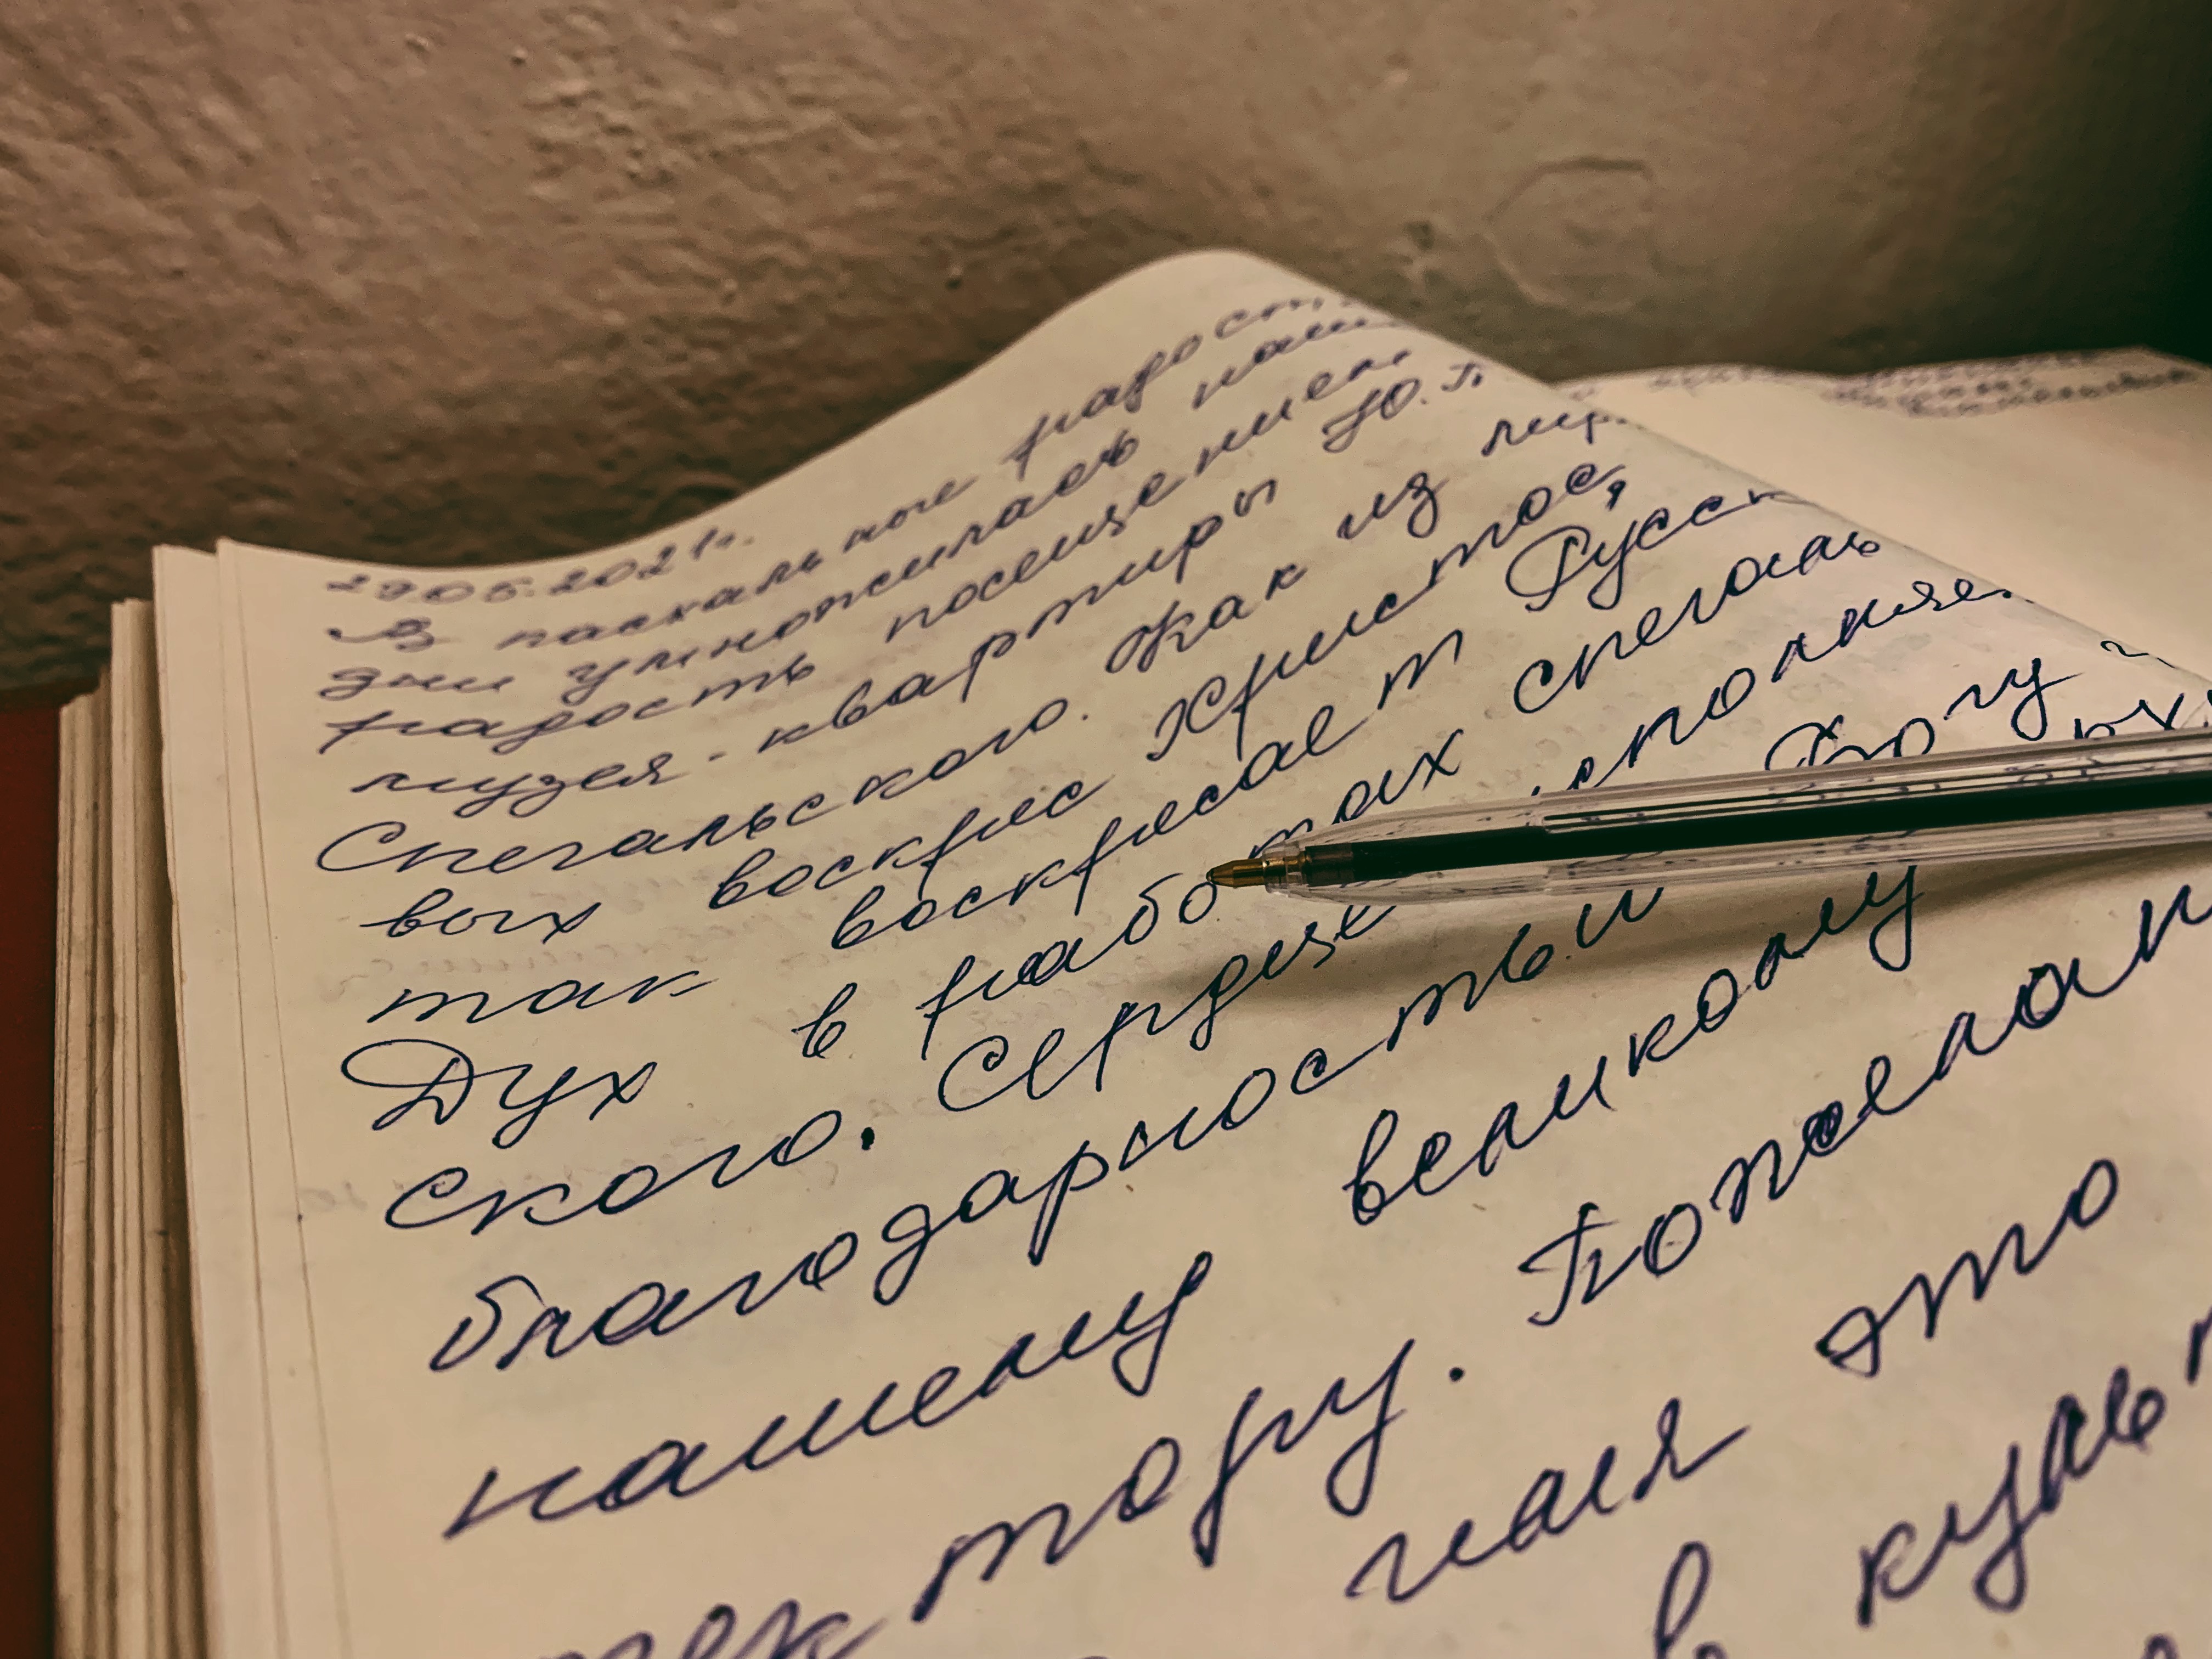 29.05.2021г.
В пасхальные радост
дни умножилась наша
радость посещением
музея-квартиры Ю.П.
Спегальского. Как из мёрт
вых воскрес Христос,
так воскресает Русск
Дух в работах Спегаль
ского. Сердца исполняе
благодарностью Богу и
нашему великому
тору. Пожелан
ная это
в культ